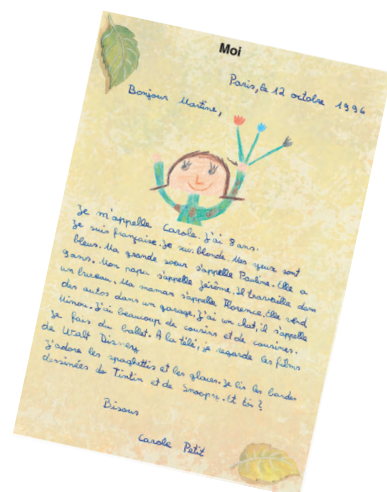 Moi
Paris, le 12 octobre 1996
Bonjour Martine,
Je m'appelle Carole. J'ai 8 ans.
Je suis française. Je suis blonde. Mes yeux sont
bleus. Ma grande soeur s'appelle Pauline. Elle a
9 ans. Mon papa s'appelle Jérôme. Il travaille dans
un bureau. Ma maman s'appelle Florence. Elle vend
des autos dans un garage. J'ai un chat, il s'appelle
Minou. J'ai beaucoup de cousins et de cousines.
Je fais du ballet. A la télé, je regarde les films
de Walt Disney.
J'adore les spaghettis et les glaces. Je lis les bandes
dessinées de Tintin et de Snoopy. Et toi ?
Bisous
Carole Petit